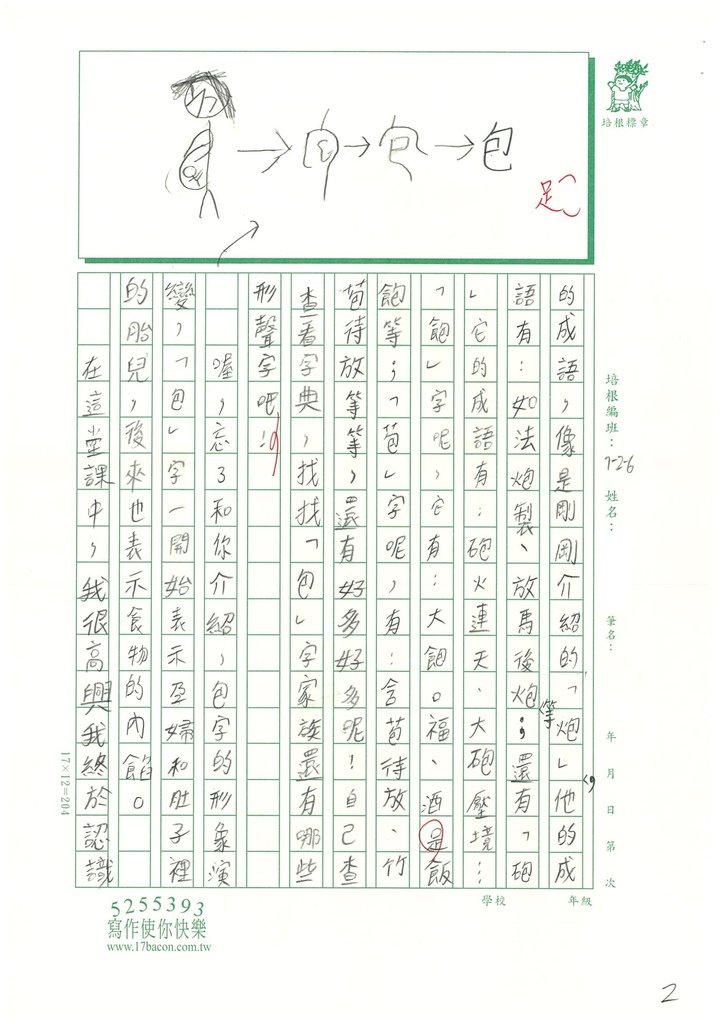 包
足
培根標章
培根編班：
1-2-6
姓名：
筆名：
年 月 日 第 次
學校 年級
的成語，像是剛剛介紹的「炮」他的成
語有：如法炮製、放馬後炮等；還有「砲
」它的成語有：砲火連天、大砲壓境…
「飽」字呢，它有：大飽口福、酒足飯
飽等；「苞」字呢，有：含苞待放、竹
苞待放等等，還有好多好多呢！自己查
查看字典，找找「包」字家族還有哪些
形聲字吧！
喔，忘了和你介紹，包字的形象演
變，「包」字一開始表示孕婦和肚子裡
的胎兒，後來也表示食物的內餡。
在這堂課中，我很高興我終於認識
17×12=204
5255393
寫作使你快樂
www.17bacon.com.tw
2